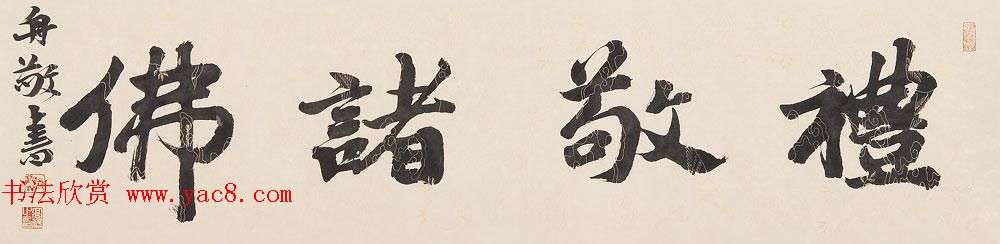 禮敬諸佛
舟敬書
书法欣赏 www.yac8.com